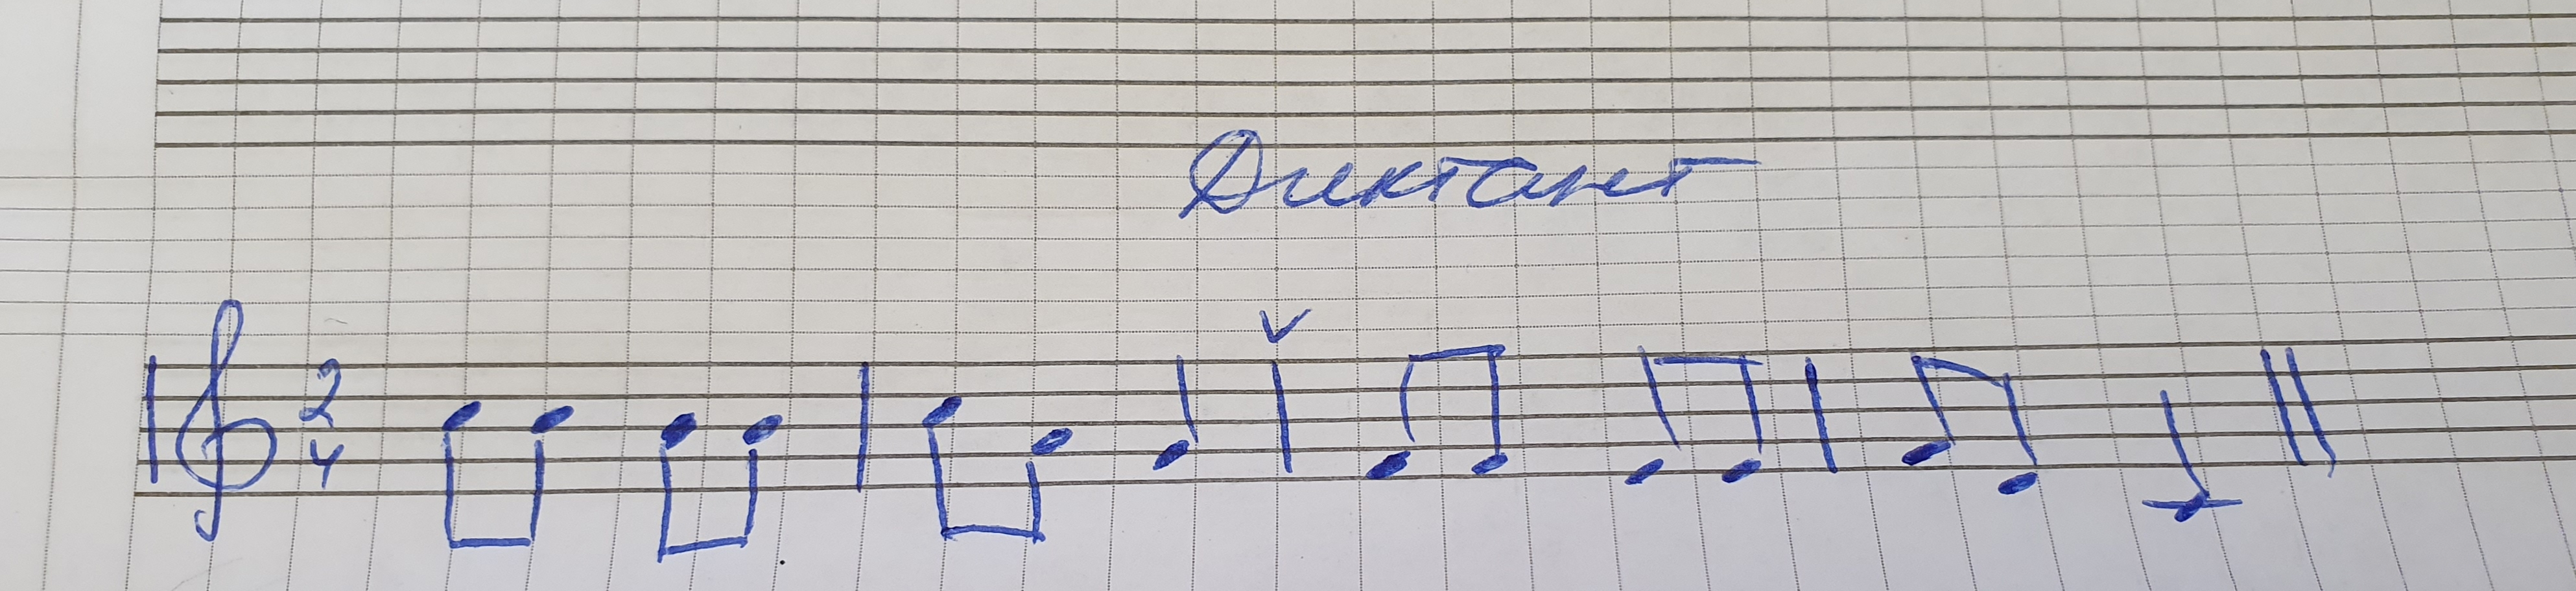 Диктант
2
4